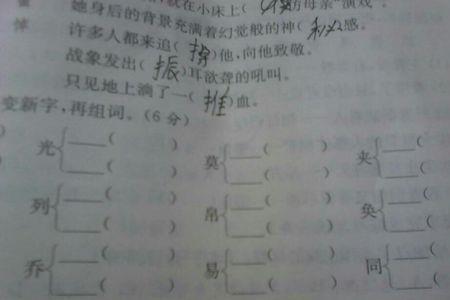 就在小床上( 模仿母亲“演戏”。
她身后的背景充满着幻觉般的神( 秘)感。
悼 许多人都来追( 掉)他,向他致敬。
战象发出( 振)耳欲聋的吼叫。
只见地上淌了一( 推)血。
变新字,再组词。(6 分)
光{ ( ) 莫{ ( ) 夹{ (
( ) ( ) (
列{ ( ) 帛{ ( ) 奂{ (
( ) ( ) (
乔{ ( ) 易{ ( ) 同{ (
( ) ( ) (